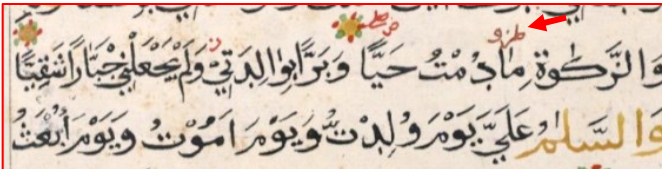 وَالزَّكٰوةِ مَا دُمْتُ حَيًّا وَبَرًّا بِوَالِدَتِيْ وَلَمْ يَجْعَلْنِيْ جَبَّارًا شَقِيًّا
وَالسَّلٰمُ عَلَيَّ يَوْمَ وُلِدْتُّ وَيَوْمَ اَمُوْتُ وَيَوْمَ اُبْعَثُ